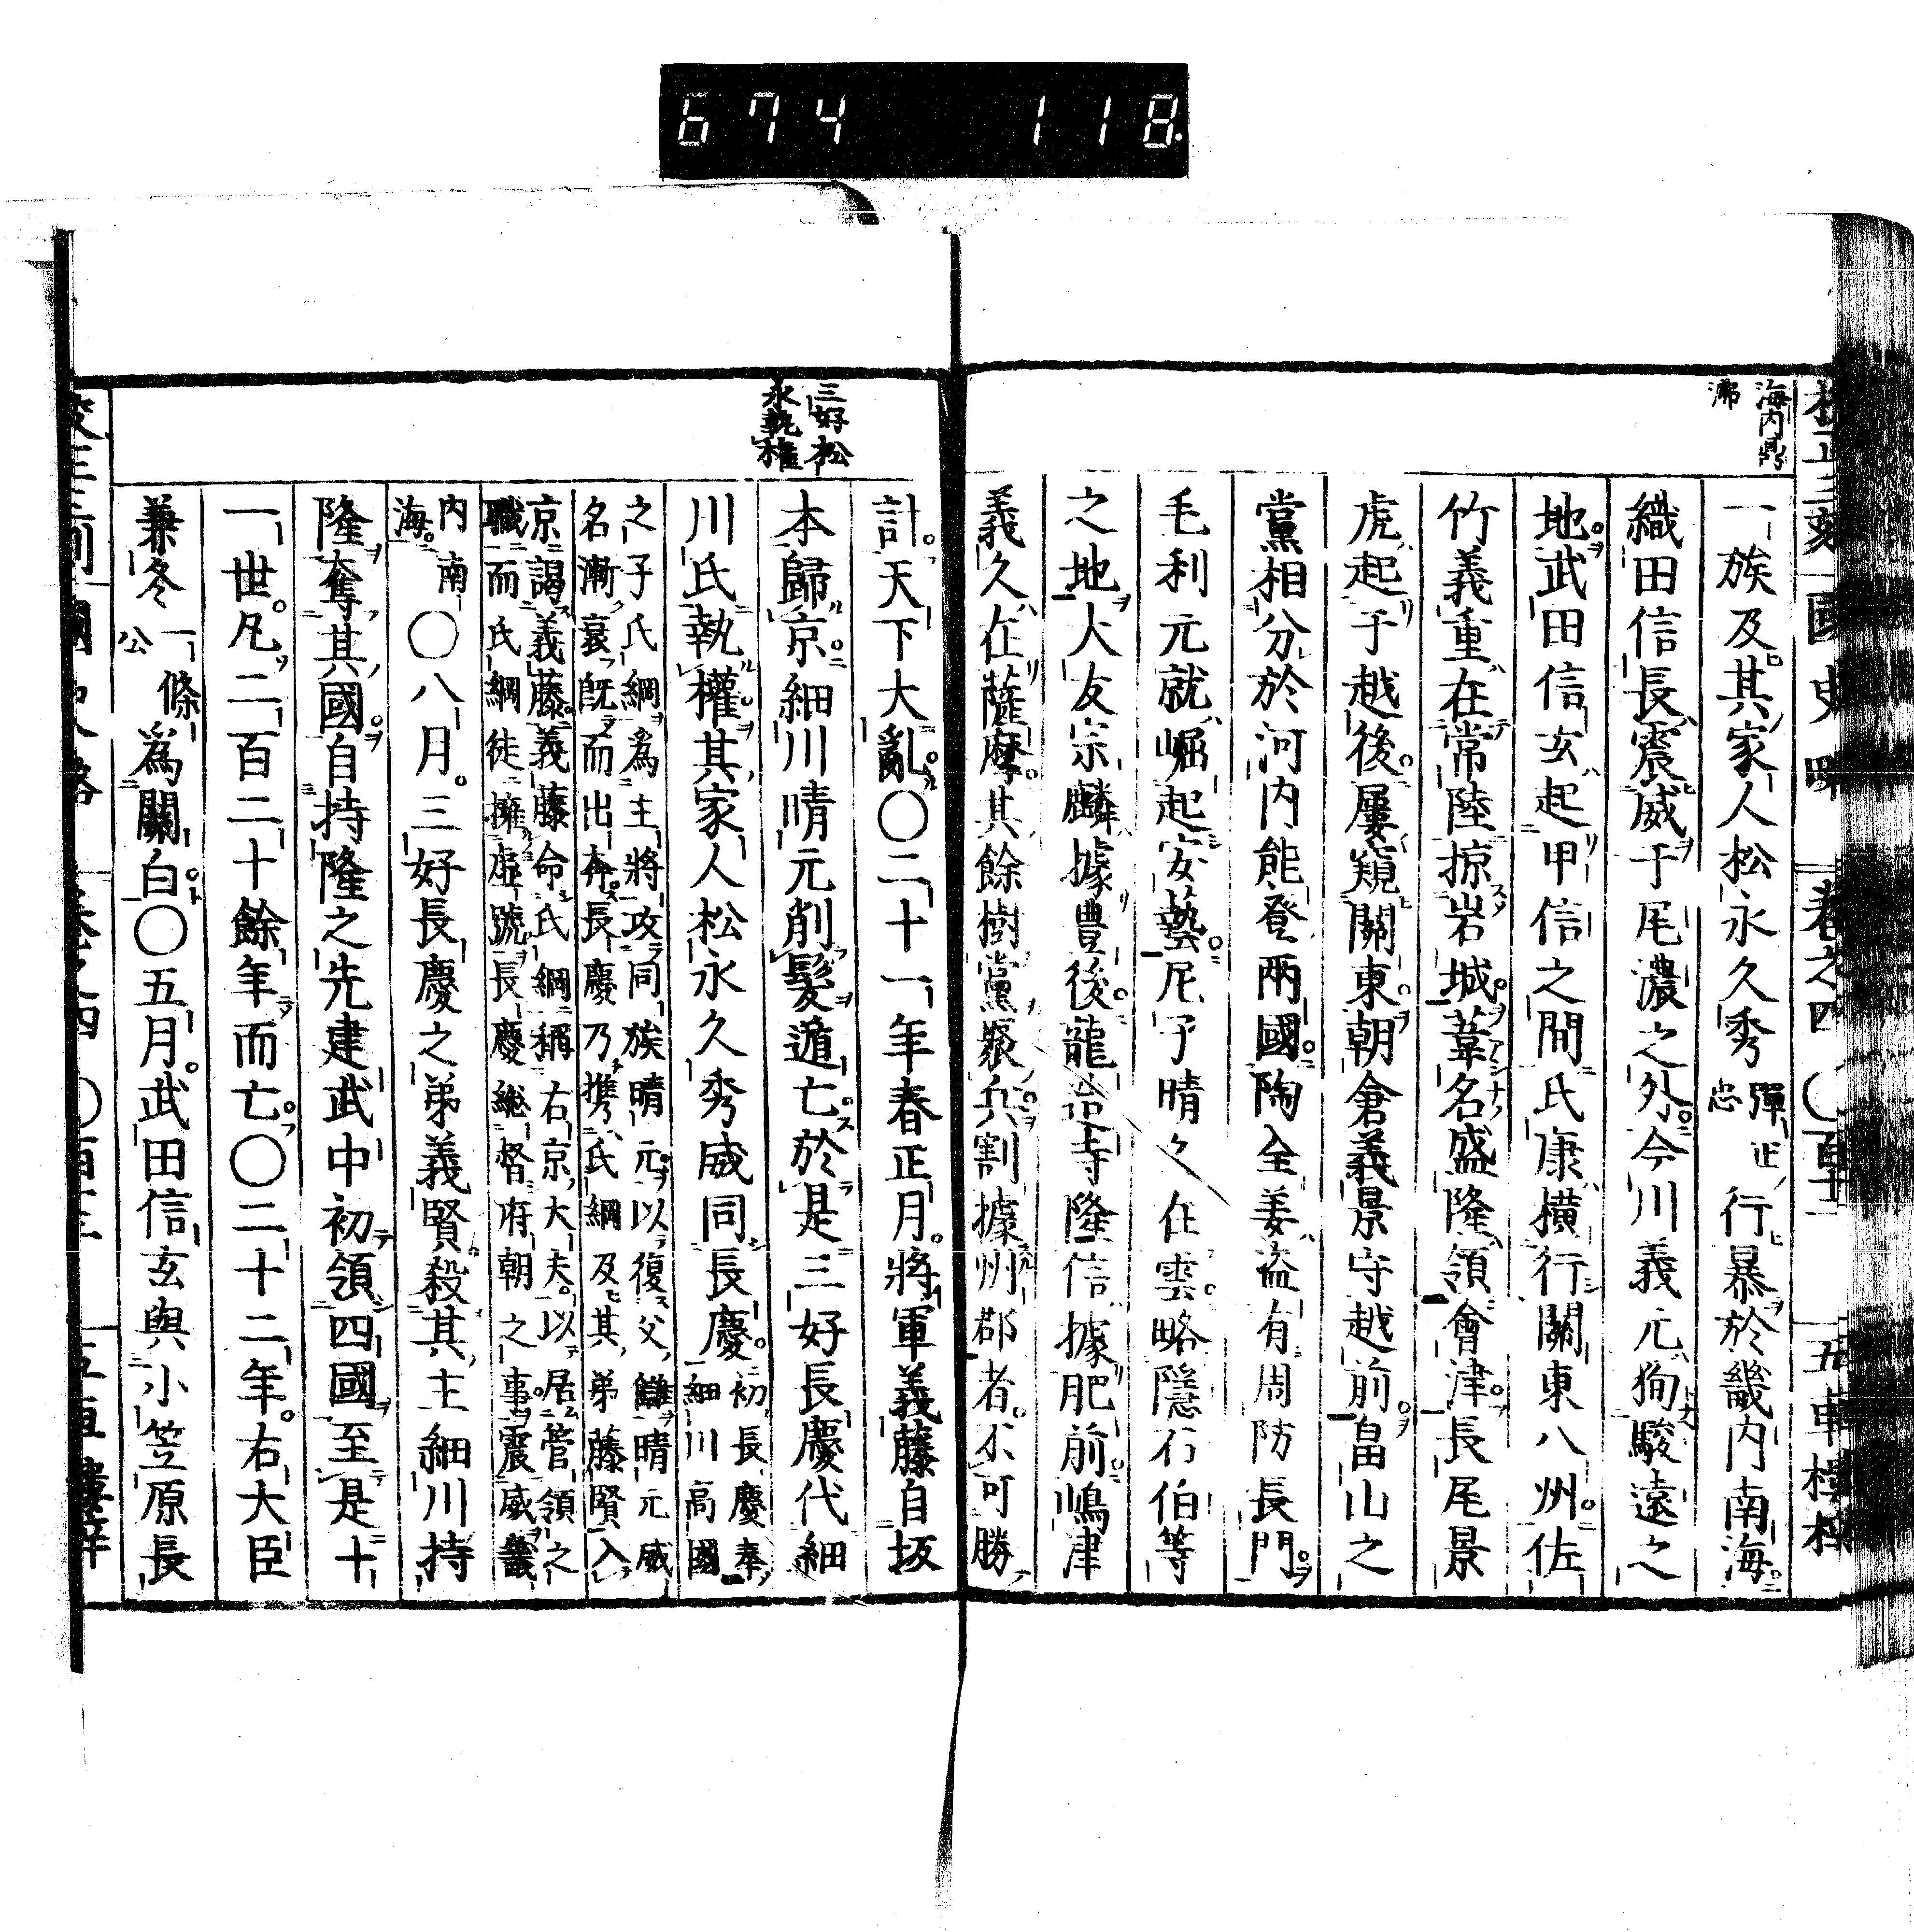 674 118.
海内鼎
沸
一族及其家人松永久秀彈正忠行暴於畿内南海
織田信長震威于尾濃之外今川義元狥駿遠之
地武田信玄起甲信之間氏康橫行關東八州佐
竹義重在常陸掠岩城葦名盛隆領會津長尾景
虎起于越後屢窺關東朝倉義景守越前畠山之
黨相分於河内能登兩國陶全姜盗有周防長門
毛利元就崛起安藝尼子晴久在雲略隱石伯等
之地大友宗麟據豊後龍造寺隆信據肥前嶋津
義久在薩摩其餘樹黨聚兵割據州郡者不可勝
三好松
永執權
計天下大亂〇二十一年春正月將軍義藤自坂
本歸京細川晴元削髮遁亡於是三好長慶代細
川氏執權其家人松永久秀威同長慶初長慶奉細川高國
之子氏綱爲主將攻同族晴元以復父讎晴元威
名漸衰既而出奔長慶乃携氏綱及其弟藤賢入
京謁義藤義藤命氏綱稱右京大夫以居管領之
職而氏綱徒擁虛號長慶総督府朝之事震威畿
内南海〇八月三好長慶之弟義賢殺其主細川持
隆奪其國自持隆之先建武中初領四國至是十
一世凡二百二十餘年而亡〇二十二年右大臣
兼冬一條公爲關白〇五月武田信玄與小笠原長